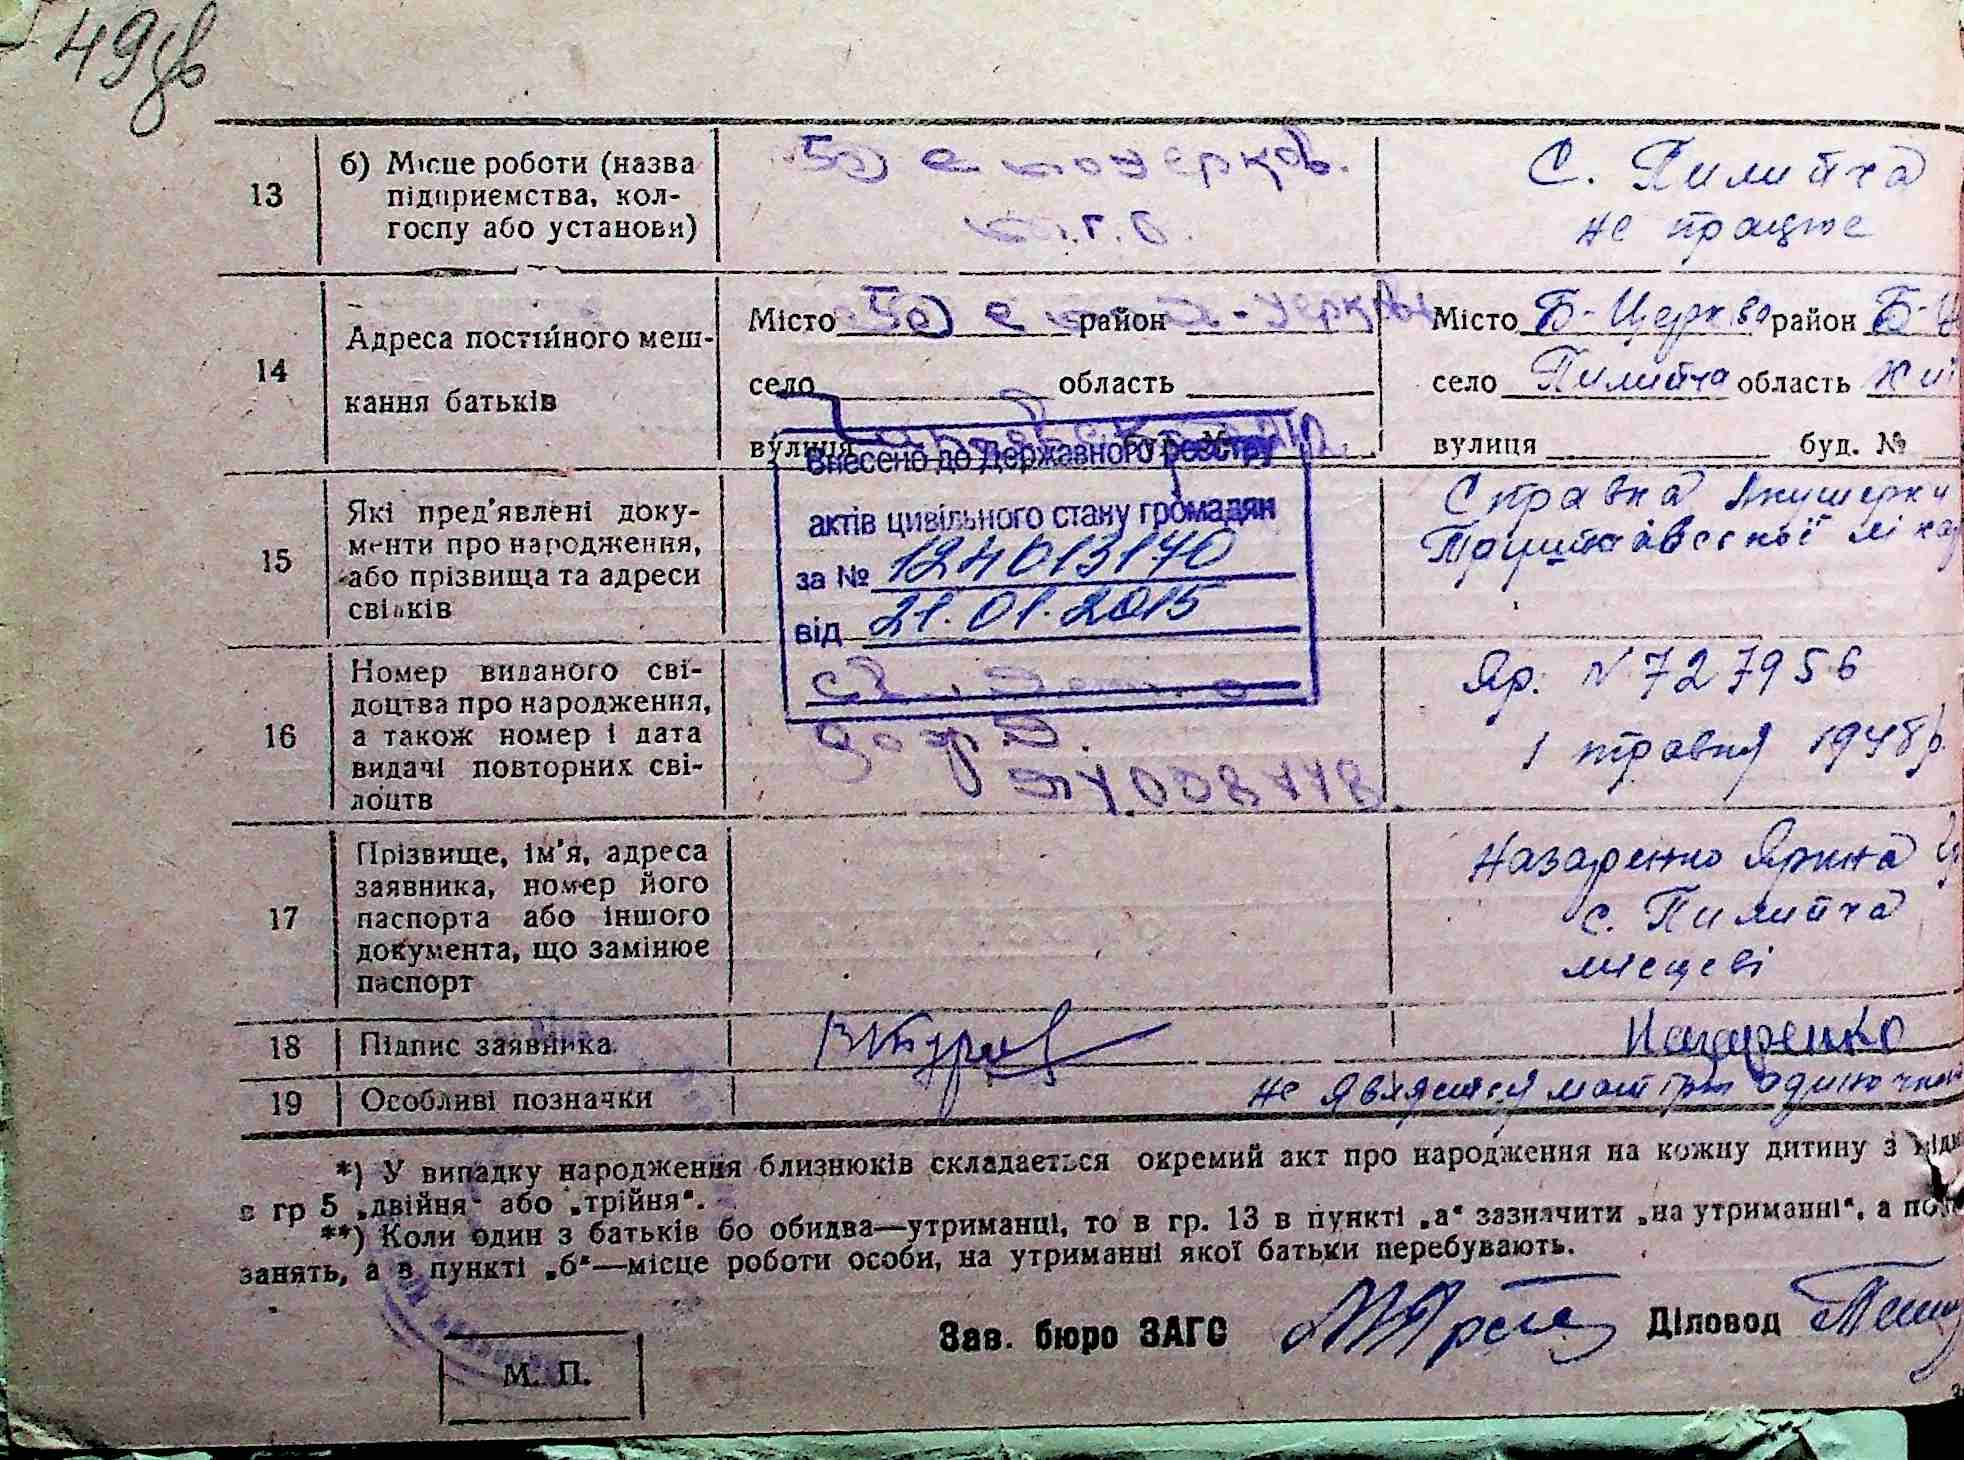 49зв
13
б) Місце роботи (назва
підприємства, кол-
госпу або установи)
церков.
С. Пилипча
не працює
14
Адреса постійного меш-
кання батьків
Місто район
село область
вулиця буд. №
Місто Б-Церква район Б-Ц
село Пилипча область
вулиця буд. №
Внесено до Державного реєстру
актів цивільного стану громадян
за № 124013170
від 21.01.2015
15
Які пред'явлені доку-
менти про народження,
або прізвища та адреси
свідків
Справка Акушерки
16
Номер виданого сві-
доцтва про народження,
а також номер і дата
видачі повторних сві-
доцтв
Яр. N 727956
1 травня 1948р.
17
Прізвище, ім'я, адреса
заявника, номер його
паспорта або іншого
документа, що замінює
паспорт
Назаренко Ярина
с. Пилипча
місцеві
18
Підпис заявника.
Назаренко
19
Особливі позначки
не являється матірю одиночкою
*) У випадку народження близнюків складається окремий акт про народження на кожну дитину з
в гр 5 „двійня“ або „трійня“.
**) Коли один з батьків бо обидва—утриманці, то в гр. 13 в пункті „а“ зазначити „на утриманні“, а
занять, а в пункті „б“—місце роботи особи, на утриманні якої батьки перебувають.
Зав. бюро ЗАГС
Діловод
М. П.